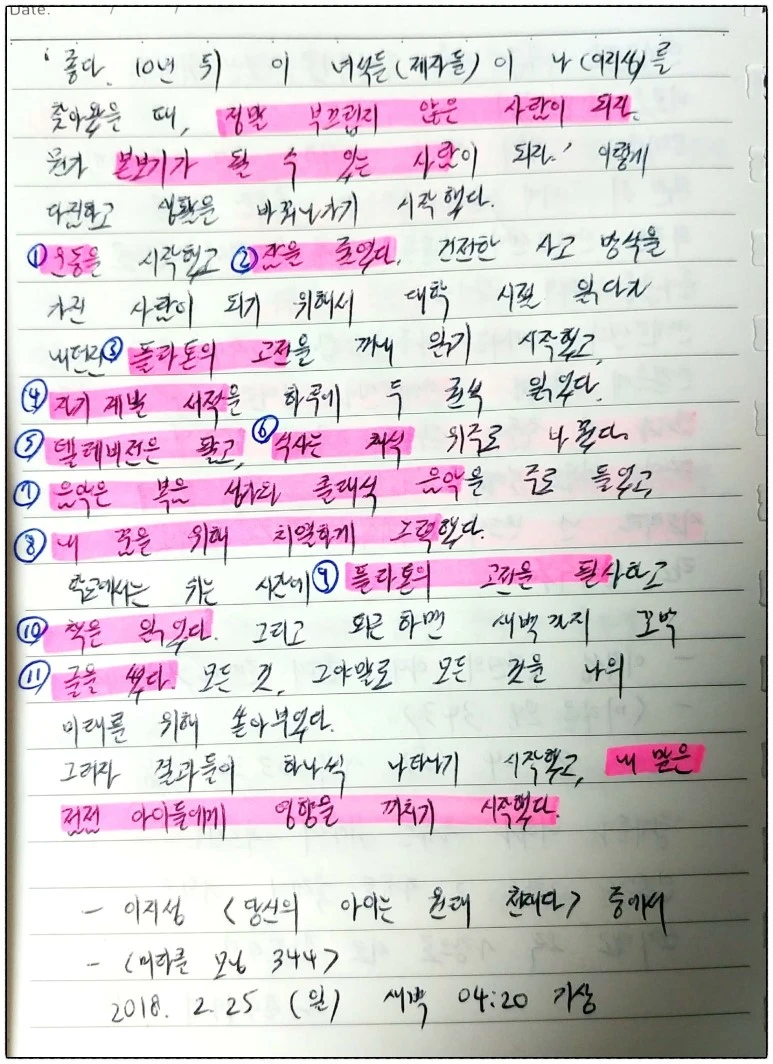 Date.
'좋다. 10년 뒤 이 녀석들(제자들)이 나(이지성)를
찾아왔을 때, 정말 부끄럽지 않은 사람이 되자.
뭔가 본보기가 될 수 있는 사람이 되자.' 이렇게
다짐하고 생활을 바꿔나가기 시작했다.
① 운동을 시작했고 ② 잠을 줄였다. 건전한 사고 방식을
가진 사람이 되기 위해서 대학 시절 읽다가
내던진 ③ 플라톤의 고전을 꺼내 읽기 시작했고,
④ 자기 계발 서적을 하루에 두 권씩 읽었다.
⑤ 텔레비전은 팔고, ⑥ 식사는 채식 위주로 바꿨다.
⑦ 음악은 복음성가와 클래식 음악을 주로 들었고,
⑧ 내 꿈을 위해 치열하게 노력했다.
학교에서는 쉬는 시간에 ⑨ 플라톤의 고전을 필사하고
⑩ 책을 읽었다. 그리고 퇴근하면 새벽까지 꼬박
⑪ 글을 썼다. 모든 것, 그야말로 모든 것을 나의
미래를 위해 쏟아부었다.
그러자 결과들이 하나씩 나타나기 시작했고, 내 말은
점점 아이들에게 영향을 끼치기 시작했다.
- 이지성 <당신의 아이는 원래 천재다> 중에서
- <미라클 모닝 344>
2018. 2. 25 (일) 새벽 04:20 기상